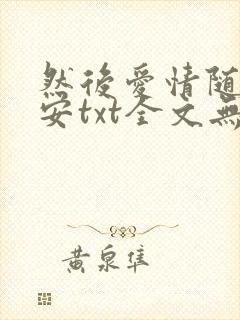 然後愛情随
安txt全文無
黄泉隼